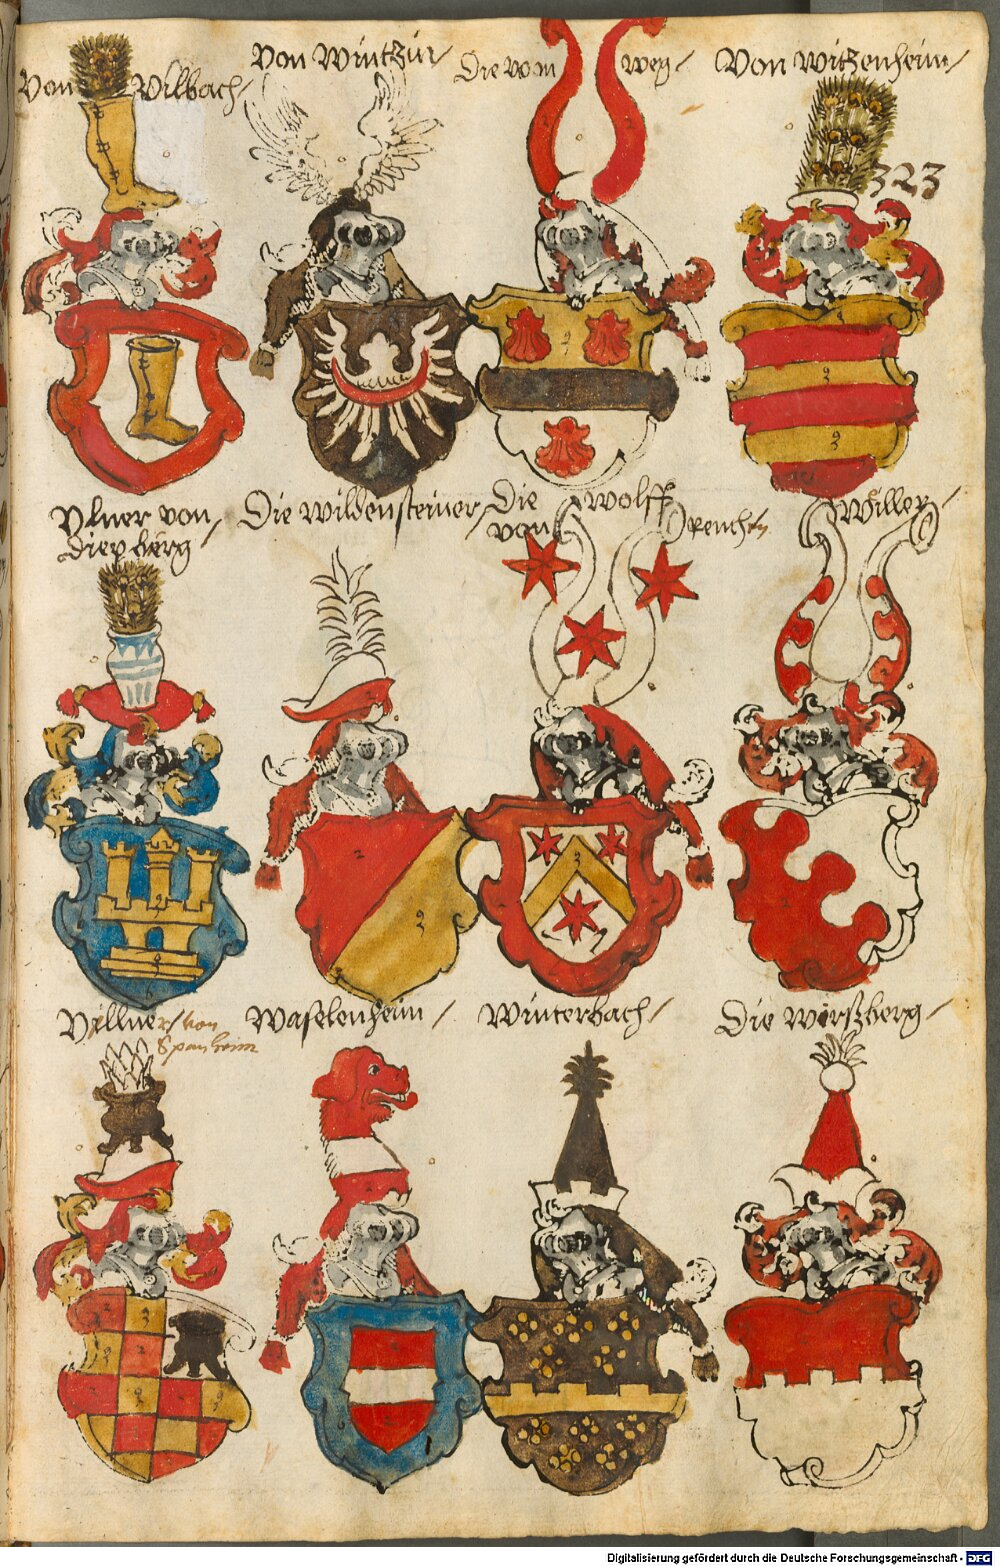 Von Vilbach
Von Wintzür
Die vom weg
Von Witzenheim
323
Ulner von
Diepberg
Die Wildensteiner
Die Wolff
von Rench
Willer
Vllner von
Spanheim
Waselenheim
Winterbach
Die Wirszberg
Digitalisierung gefördert durch die Deutsche Forschungsgemeinschaft - DFG